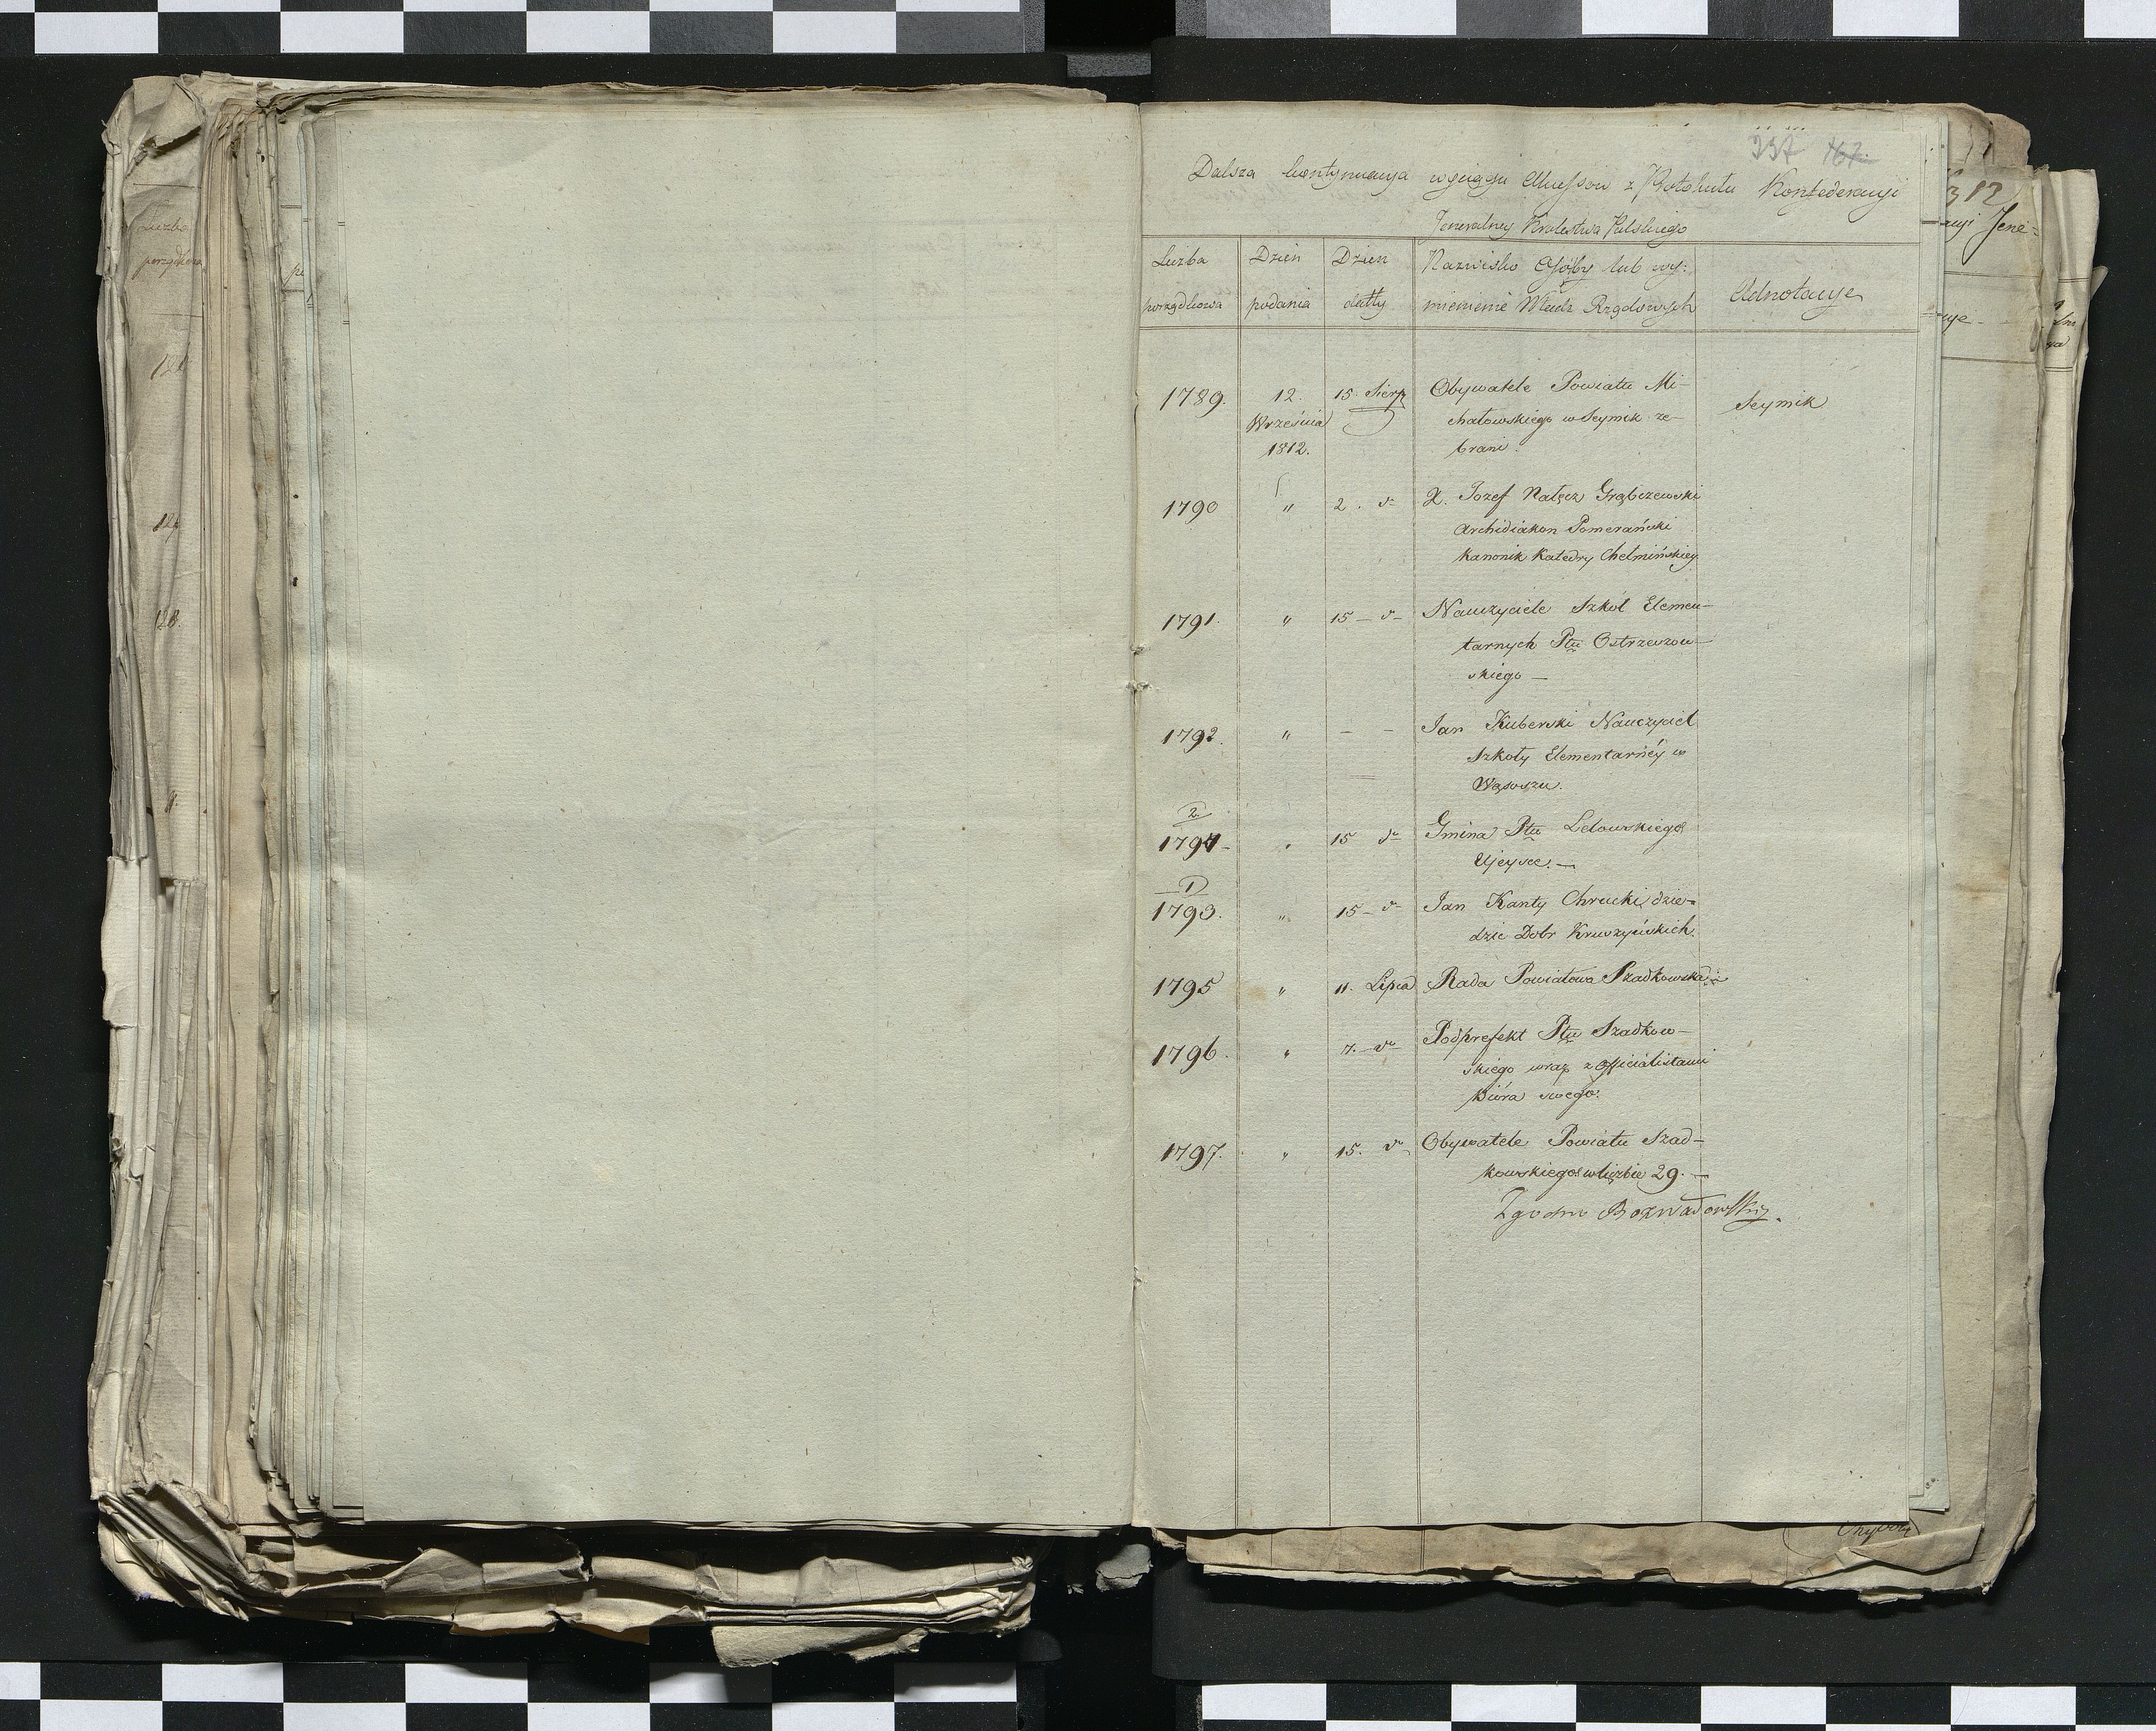 237 167.
Dalsza kontynuacya wyciągu Akcessow z Protokułu Konfederacyi
Jeneralney Krolestwa Polskiego
Liczba porządkowa
Dzień podania
Dzień datty
Nazwisko Osoby lub wy:
mienienie Władz Rządowych
Adnotacye
1789. 12. 15. Sierp Obywatele Powiatu Mi- Seymik
Września chałowskiego w Seymik ze-
1812. brani.
1790 " 2. d- X. Jozef Nałęcz Grąbczewski
Archidiakon Pomerański
Kanonik Katedry Chełmińskiey
1791. " 15 - d- Nauczyciele Szkół Elemen-
tarnych Ptu Ostrzeszow-
skiego -
1792. " - - Jan Kuberski Nauczyciel
Szkoły Elementarney w
Wąsoszu.
2
1794- " 15 d- Gmina Ptu Lelowskiego
-
1
1793. " 15 - d- Jan Kanty Chrucki dzie-
dzic Dobr Kruszyńskich
1795 " 11. Lipca Rada Powiatowa Szadkowska
1796. " 7. d- Podprefekt Ptu Szadkow-
skiego wraz z Officialistami
Biura swego.
1797. " 15. d- Obywatele Powiatu Szad-
kowskiego w liczbie 29. -
Zgodno Rozwadowski.
312
Jene-
Liczba
porządkowa
128.